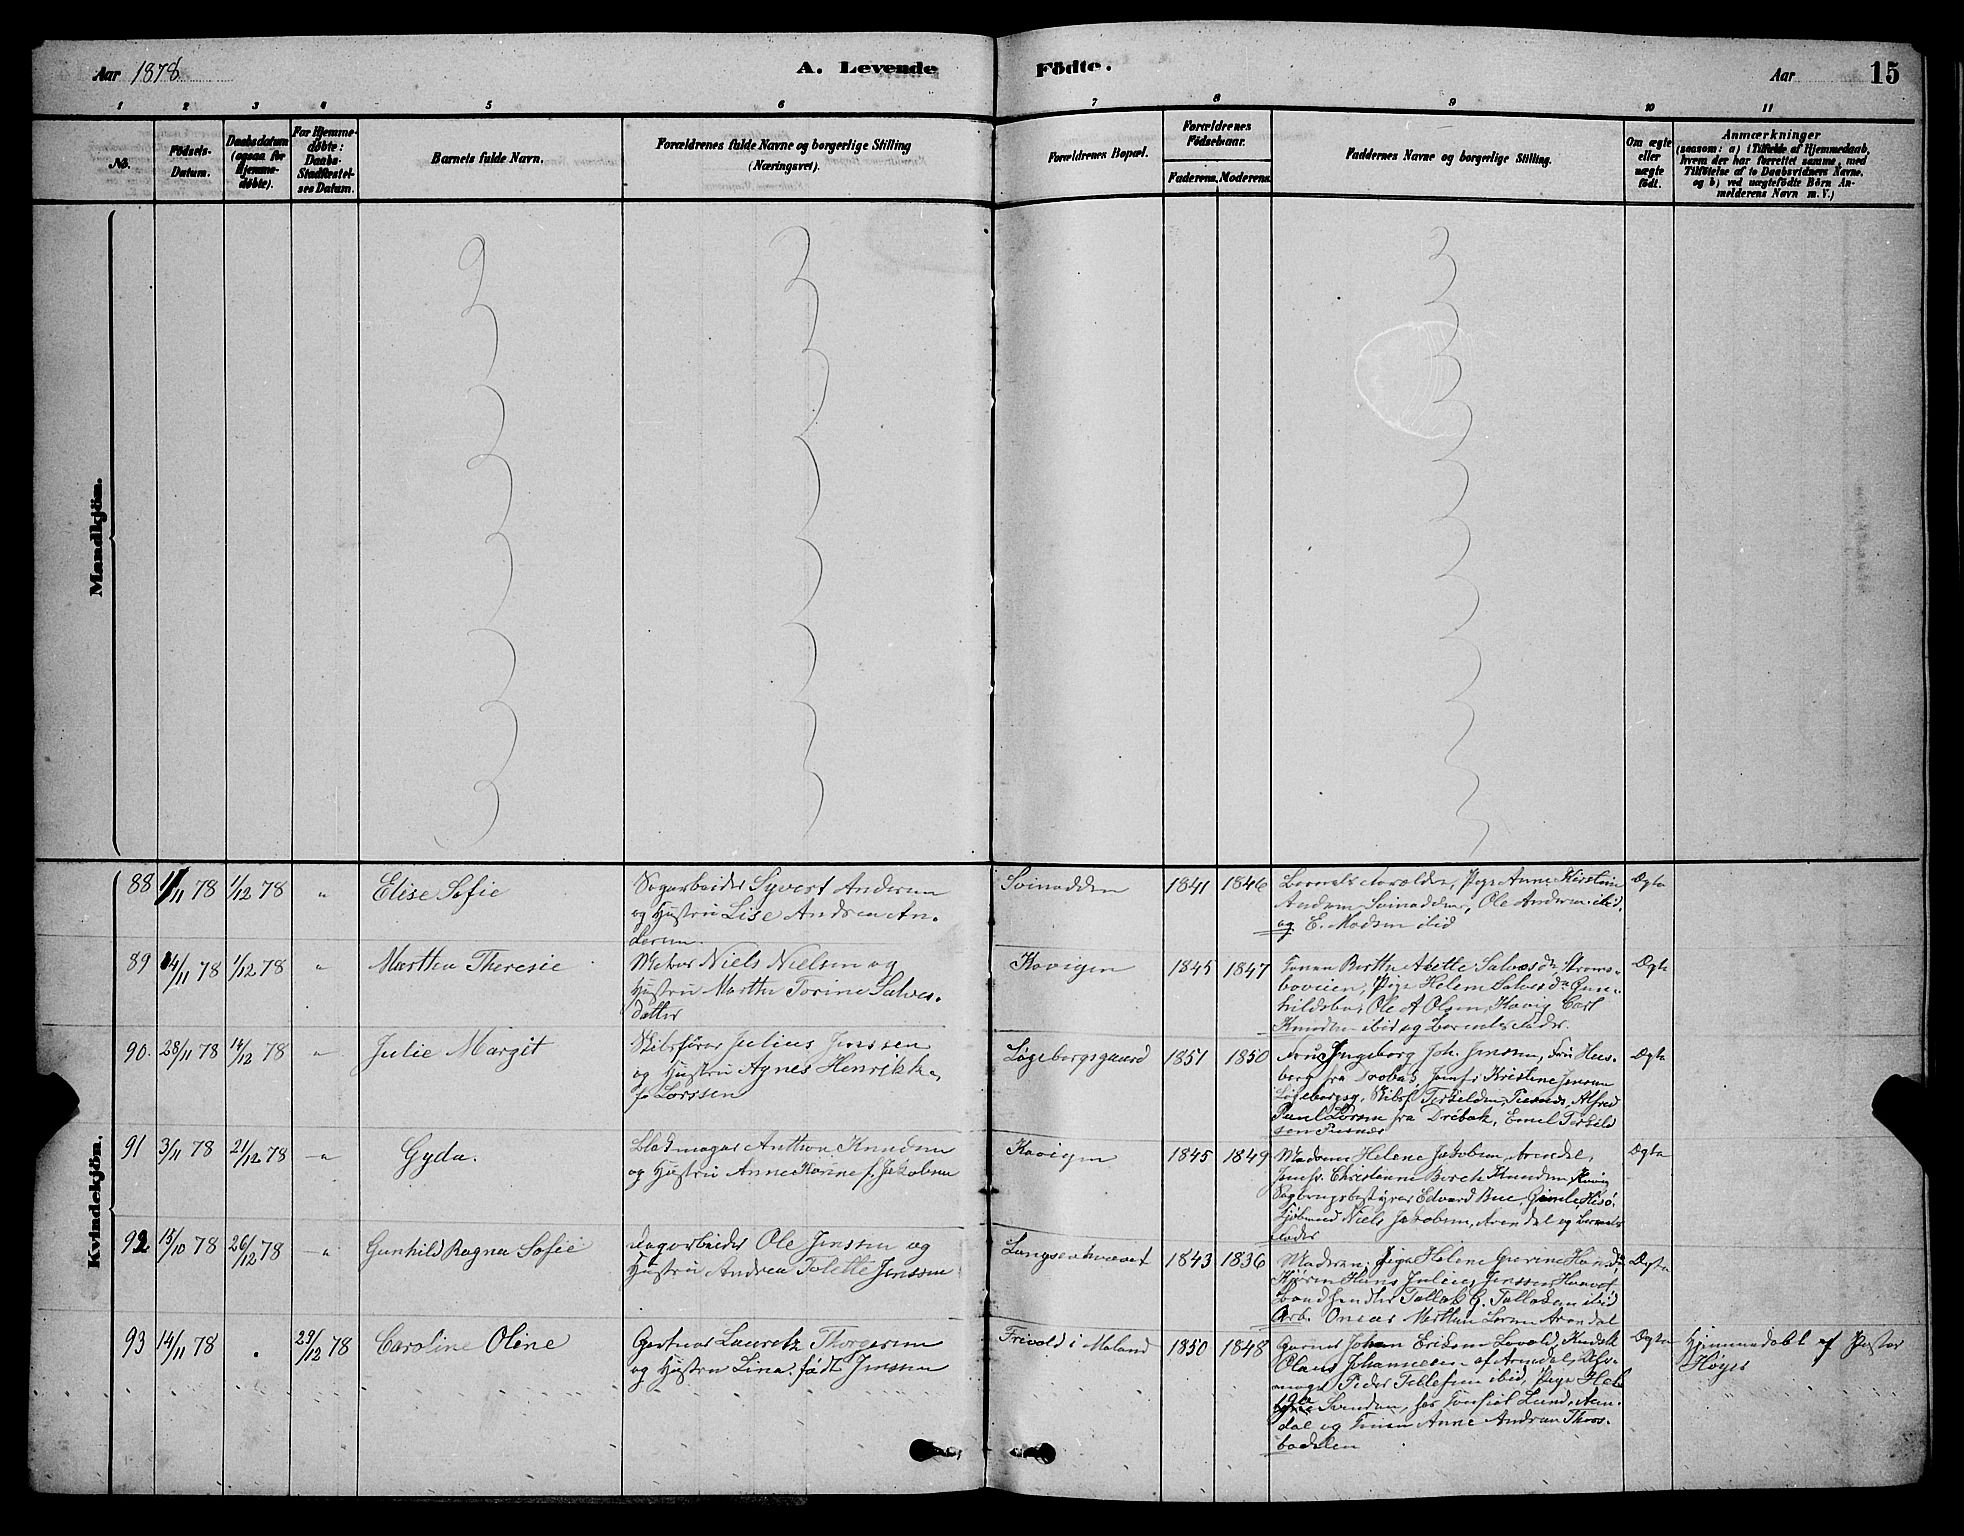 Aar 1878
A. Levende Födte.
Aar 15
1 2 3 4 5 6 7 8 9 10 11
No.
Födsels-Datum.
Daabsdatum (ogsaa for Hjemme-døbte).
For Hjemme-døbte: Daabs-Stadfæstel-ses Datum.
Barnets fulde Navn.
Forældrenes fulde Navne og borgerlige Stilling (Næringsvei).
Forældrenes Bopæl.
Forældrenes Födselsaar.
Faderens. Moderens.
Faddernes Navne og borgerlige Stilling.
Om ægte eller uægte födt.
Anmærkninger
(saasom: a) i Tilfælde af Hjemmedaab, hvem der har forrettet samme, med Tilføielse af to Daabsvidners Navne, og b) ved uægtefödte Börn Anmelderens Navn m. V.)
Mandkjön.
Kvindekjön.
88 1/11 78 1/12 78 " Elise Sofie
Sagarbeider Syvert Andersen
og Hustru Lise Andrea An-
dersen
Svinodden 1841 1846
Barnets Forældre, Pige Anne Kirstine
Andersen Svinodden, Ole Andersen ibid,
og E. Madsen ibid
Ægte
89 14/11 78 1/12 78 " Martha Theresie
Niels Nielsen og
Hustru Martha Torine Salves-
datter
Kovigen 1845 1847
Konen Berthe Axette Salvesdr. Stroms-
boveien, Pige Helene Salvesdr.
Ole A Olsen, Kovig Carl
Knudsen ibid og Barnets Fader.
Ægte
90. 28/11 78 14/12 78 " Julie Margit
Skibsfører Julius Jenssen
og Hustru Agnes Henrikke
f. Lorssen
Løgebergsgaard 1851 1850
Frue Ingeborg Joh. Jenssen, Frk Hus-
berg fra Drøbak, Jomfr Kristine Jensen
Løgebergsg, Skibsf. Terkeldsen, Pusnes, Alfred
Paul Lorsen fra Drøbak, Emel Terkild
sen Pusnæs
Ægte
91 3/11 78 21/12 78 " Gyda.
Blokmager Anthon Knudsen
og Hustru Anne Karine f. Jakobsen
Kovigen 1845 1849
Madame Helene Jakobsen Arendal,
Jomfr. Christiane Birch Knudsen, Kovig
Sagbrugsbestyrer Edvard Bue, Gimle, Hisø,
Niels Jakobsen, Arendal og Barnets
Fader
Ægte
92 15/10 78 26/12 78 " Gunhild Ragna Sofie
Dagarbeider Ole Jenssen og
Hustru Andrea Tolette Jenssen
Langsevkværet 1843 1836
Moderen, Pige Helene Gurine Hansdr
Hans Julius Jenssen
Landhandler Tallak G. Tallaksen ibid
Arb. Onsar Mathias Larsen Arendal
Ægte
93 14/11 78 . 29/12 78 Caroline Oline
Gartner Lauritz Thorgersen
og Hustru Lina født Jenssen
Frivold i Moland 1850 1848
Garver Johan Eriksen Lovold, Kudsk
Olaus Johannesen af Arendal, Uhr-
mager Peder Tellefsen ibid, Pige Hel
ene Svendsen, hos Lund, Aren-
dal og Konen Anne Andrea Thors-
bodalen
Ægte
Hjemmedøbt af Pastor
Høyer